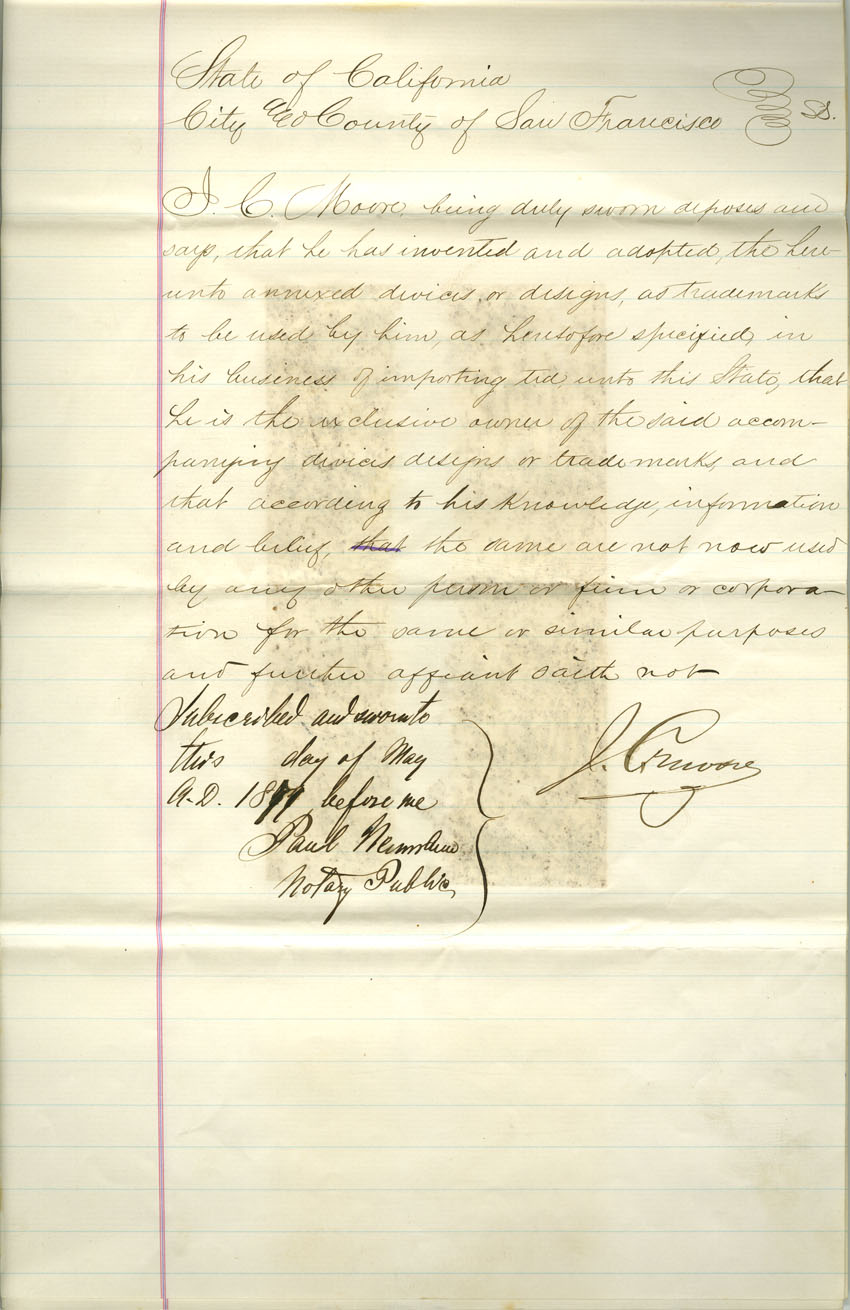 State of California
City and County of San Francisco } SS.
J. C. Moore, being duly sworn deposes and
says, that he has invented and adopted, the here-
unto annexed devices, or designs, as trademarks
to be used by him, as heretofore specified, in
his business of importing tea unto this State, that
he is the exclusive owner of the said accom-
panying devices designs or trademarks, and
that according to his knowledge, information
and belief, that the same are not now used
by any other person or firm or corpora-
tion for the same or similar purposes
and further affiant saith not
Subscribed and sworn to
this day of May J. C. Moore
A.D. 18 before me
Paul
Notary Public